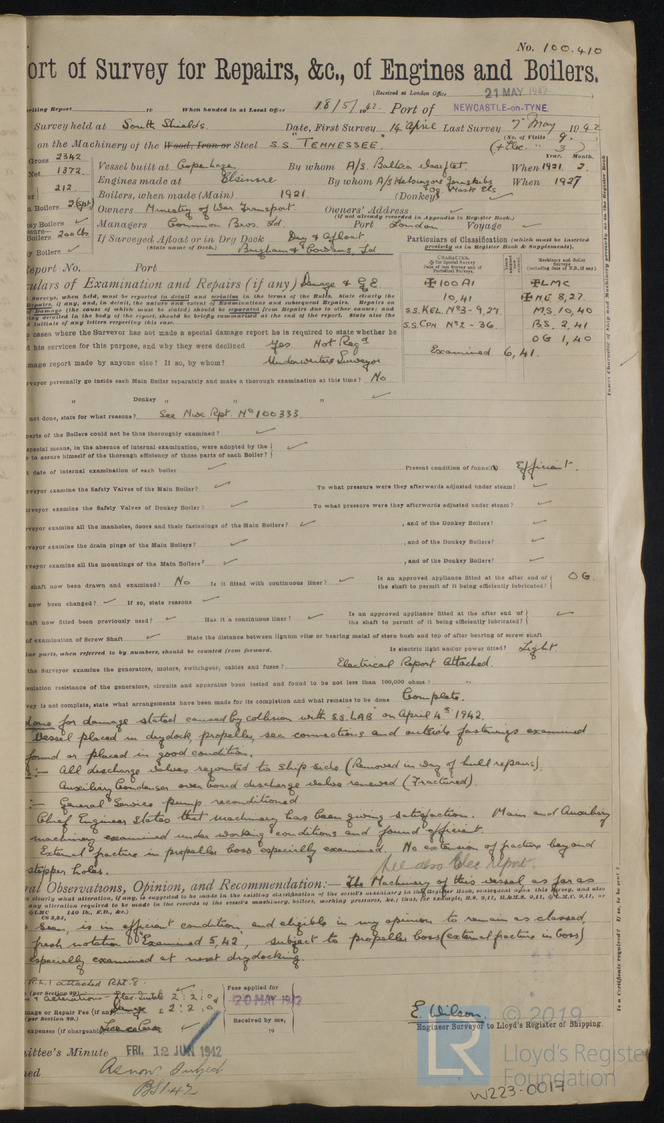 No. 100.410
ort of Survey for Repairs, &c., of Engines and Boilers.
(Received at London Office 21 MAY 1942
riting Report 19 When handed in at Local Office 18/5/1942. Port of NEWCASTLE-on-TYNE.
Survey held at South Shields. Date, First Survey 14 April Last Survey 7th May 1942
(No. of Visits 9.
on the Machinery of the Wood, Iron or Steel S.S. "TENNESSEE." (+ Elec. " 3)
Gross 2342 Vessel built at Copenhagen By whom A/S When 1921. 2.
Net 1372 Engines made at Elsinore By whom A/S When 1927
212 Boilers, when made (Main) 1921 (Donkey) ✓
Boilers 2(pt) Owners Ministry of War Transport Owners' Address ✓
(If not already recorded in Appendix to Register Book.)
Boilers ✓ Managers Common Bros. Ld Port London Voyage ✓
Boilers 200 lbs If Surveyed Afloat or in Dry Dock Dry & Afloat
(State name of Dock.) Brigham & Cowans, Ld
y Boilers ✓
Particulars of Classification (which must be inserted precisely as in Register Book & Supplements).
eport No. Port
ulars of Examination and Repairs (if any) Damage & G.E
✠ 100 A1 ✠ LMC
10,41 ✠ NE 8,27.
S.S. KEL. No 3 - 9,27. M.S. 10,40
S.S. CPN No 2 - 36. B.S. 2,41
OG 1,40
Examined 6,41.
cases where the Surveyor has not made a special damage report he is required to state whether he
his services for this purpose, and why they were declined Yes. Not Reqd
mage report made by anyone else? If so, by whom? Underwriters Surveyor
veyor personally go inside each Main Boiler separately and make a thorough examination at this time? No
" Donkey " " " ✓
not done, state for what reasons? See Nwc Rpt No 100333.
parts of the Boilers could not be thus thoroughly examined? ✓
special means, in the absence of internal examination, were adopted by the
to assure himself of the thorough efficiency of those parts of each Boiler? ✓
date of internal examination of each boiler ✓ Present condition of funnel(s) Efficient.
veyor examine the Safety Valves of the Main Boiler? ✓ To what pressure were they afterwards adjusted under steam? ✓
veyor examine the Safety Valves of Donkey Boiler? ✓ To what pressure were they afterwards adjusted under steam? ✓
veyor examine all the manholes, doors and their fastenings of the Main Boilers? ✓ , and of the Donkey Boilers? ✓
veyor examine the drain plugs of the Main Boilers? ✓ , and of the Donkey Boilers? ✓
veyor examine all the mountings of the Main Boilers? ✓ , and of the Donkey Boilers? ✓
shaft now been drawn and examined? No Is it fitted with continuous liner? ✓ Is an approved appliance fitted at the after end of the shaft to permit of it being efficiently lubricated? OG.
now been changed? ✓ If so, state reasons ✓
haft now fitted been previously used? ✓ Has it a continuous liner? ✓ Is an approved appliance fitted at the after end of the shaft to permit of it being efficiently lubricated? ✓
of examination of Screw Shaft ✓ State the distance between lignum vitæ or bearing metal of stern bush and top of after bearing of screw shaft
ine parts, when referred to by numbers, should be counted from forward. Is electric light and/or power fitted? Light.
the Surveyor examine the generators, motors, switchgear, cables and fuses? Electrical Report Attached.
sulation resistance of the generators, circuits and apparatus been tested and found to be not less than 100,000 ohms?
vey is not complete, state what arrangements have been made for its completion and what remains to be done Complete.
done for damage stated caused by collision with S.S. LAB on April 4th 1942.
Vessel placed in drydock, propeller, sea connections and outside fastenings examined
found or placed in good condition.
:- All discharge valves rejointed to ship side (Removed in way of hull repairs).
Auxiliary Condenser overboard discharge valve renewed (Fractured).
:- General Service pump reconditioned
Chief Engineer States that machinery has been giving satisfaction. Main and Auxiliary
machinery examined under working conditions and found efficient.
External fracture in propeller boss especially examined. No extension of fracture beyond
stopper holes. See also Elec Report.
ral Observations, Opinion, and Recommendation:— The Machinery of this vessel as far as
seen, is in efficient condition, and eligible in my opinion to remain as classed,
fresh notation "Examined 5,42, subject to propeller boss (external fracture in boss)
especially examined at next drydocking.
attached Rpt. 8.
2 : 2 : 0
mage or Repair Fee (if any) 2 : 2 : 0
(per Section 29.)
xpenses (if chargeable)
Fees applied for
20 MAY 1942
Received by me,
19
E. Wilson.
Engineer Surveyor to Lloyd's Register of Shipping.
ittee's Minute FRI. 12 JUN 1942
ned As now Subject
BS 1.42
Is a Certificate required? If so, to be sent to
© 2019
LR
Lloyd's Register
Foundation
W223-0017